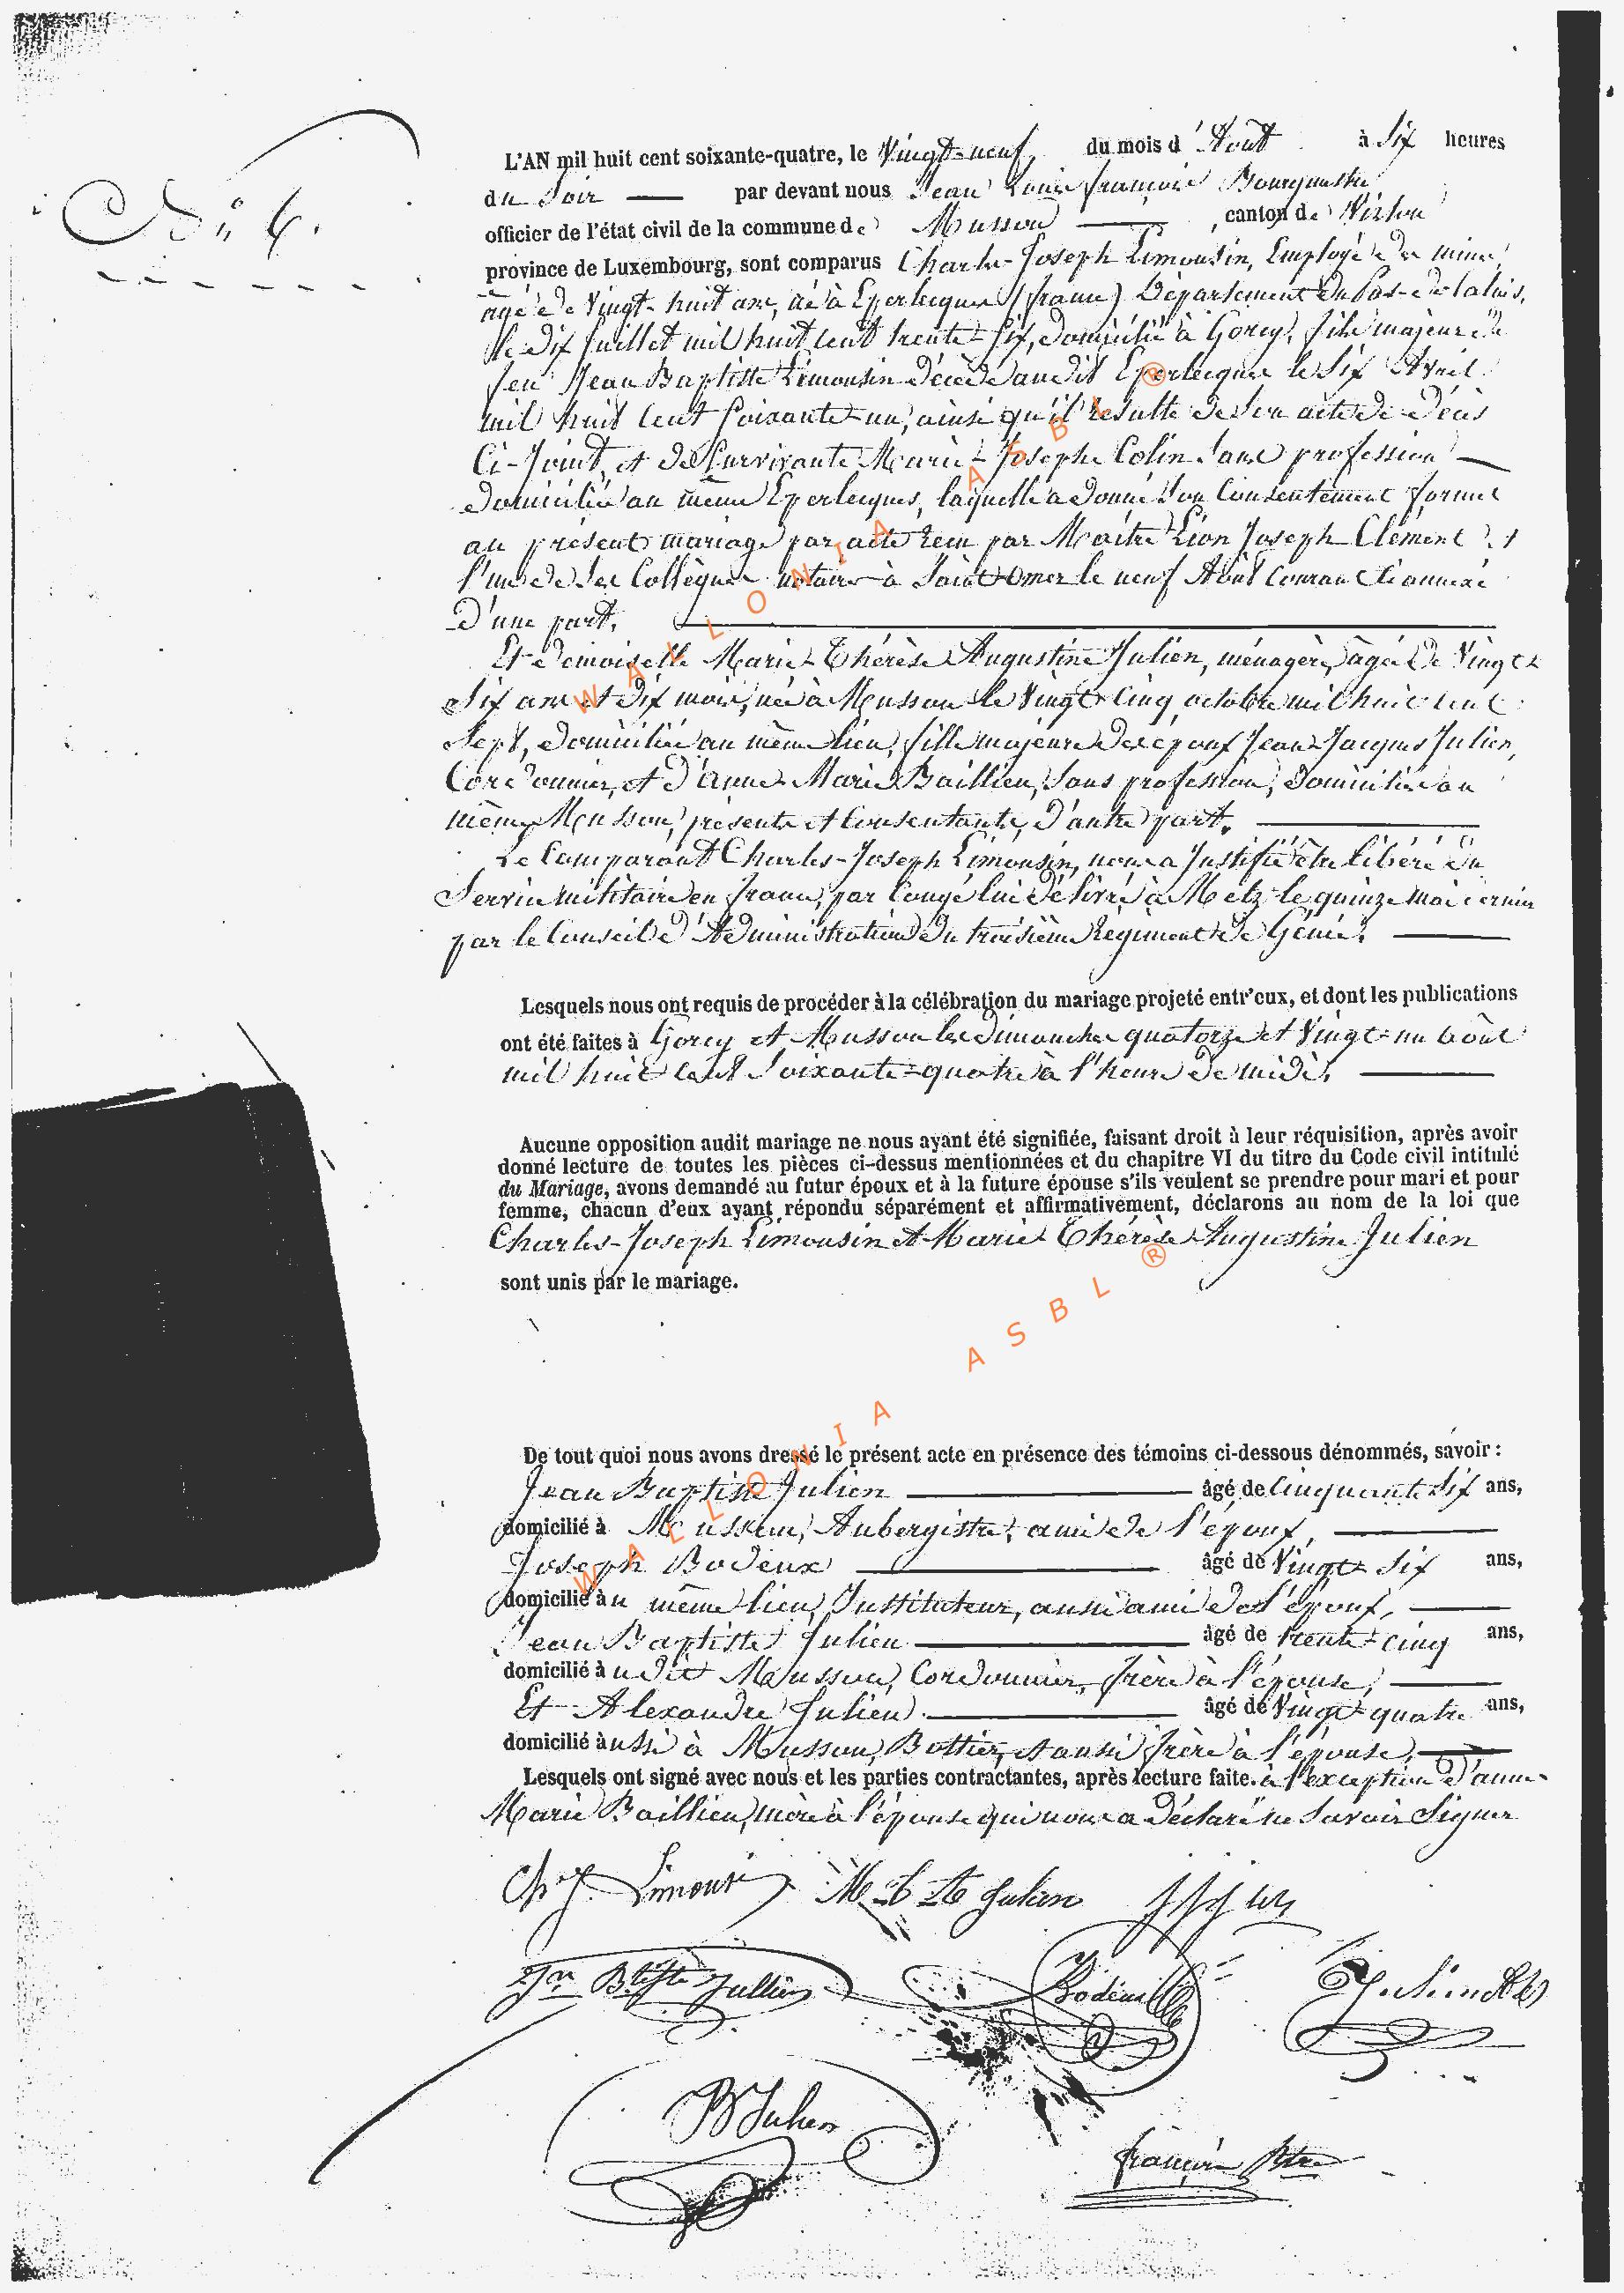 N° 6.
L'AN mil huit cent soixante-quatre, le Vingt-neuf, du mois d'Août à Six heures
du Soir par devant nous Jean Louis françois Bourguestre
officier de l'état civil de la commune de Musson, canton de Virton
province de Luxembourg, sont comparus Charles-Joseph Limousin, Employé de mine,
âgé de Vingt-huit ans, né à Eperlecques (france) Département du Pas-de-Calais,
le dix Juillet mil huit cent trente-six, domicilié à Gorcy, fils majeur de
feu Jean Baptiste Limousin décédé audit Eperlecques le Six Avril
mil huit cent Soixante-un, ainsi qu'il résulte de son acte de décès
Ci-Joint, et de Survivante Marie-Josephe Colin sans profession
domiciliée au même Eperlecques, laquelle a donné son Consentement formel
au présent mariage par acte reçu par Maître Léon Joseph Clément et
l'un de ses Collègues notaires à Saint-Omer le neuf Août Courant ci annexé
D'une part.
Et demoiselle Marie-Thérèse Augustine Julien, ménagère, âgée de Vingt-
Six ans et dix mois, née à Musson le Vingt-Cinq octobre mil huit cent
Sept, domiciliée au même lieu, fille majeure des époux Jean-Jacques Julien,
Cordonnier, et d'Anne-Marie Baillieu, Sans profession, domiciliés au
même Musson, présents et Consentants, D'autre part.
Le Comparant Charles-Joseph Limousin, nous a Justifié être libéré du
Service militaire en france, par Congé lui délivré à Metz le quinze mai dernier
par le Conseil d'Administration du troisième Régiment de Génie.
Lesquels nous ont requis de procéder à la célébration du mariage projeté entr'eux, et dont les publications
ont été faites à Gorcy et Musson les Dimanches quatorze et Vingt-un août
mil huit cent Soixante-quatre à l'heure de midi.
Aucune opposition audit mariage ne nous ayant été signifiée, faisant droit à leur réquisition, après avoir
donné lecture de toutes les pièces ci-dessus mentionnées et du chapitre VI du titre du Code civil intitulé
du Mariage, avons demandé au futur époux et à la future épouse s'ils veulent se prendre pour mari et pour
femme, chacun d'eux ayant répondu séparément et affirmativement, déclarons au nom de la loi que
Charles-Joseph Limousin et Marie Thérèse Augustine Julien
sont unis par le mariage.
De tout quoi nous avons dressé le présent acte en présence des témoins ci-dessous dénommés, savoir :
Jean Baptiste Julien âgé de Cinquante Six ans,
domicilié à Musson, Aubergiste, ami de l'époux,
Joseph Bodeux âgé de Vingt-Six ans,
domicilié au même lieu, Instituteur, aussi ami de l'époux,
Jean Baptiste Julien âgé de trente-cinq ans,
domicilié audit Musson, Cordonnier, frère à l'épouse,
Et Alexandre Julien âgé de Vingt-quatre ans,
domicilié aussi à Musson, Bottier, et aussi frère à l'épouse,
Lesquels ont signé avec nous et les parties contractantes, après lecture faite. à l'exception d'anne-
Marie Baillieu, mère à l'épouse qui nous a déclaré ne Savoir Signer
Ch J. Limousin M t te Julien
Jn Btiste Jullien Bodeux
B Julien
françois Btre
WALLONIA ASBL ®
WALLONIA ASBL ®